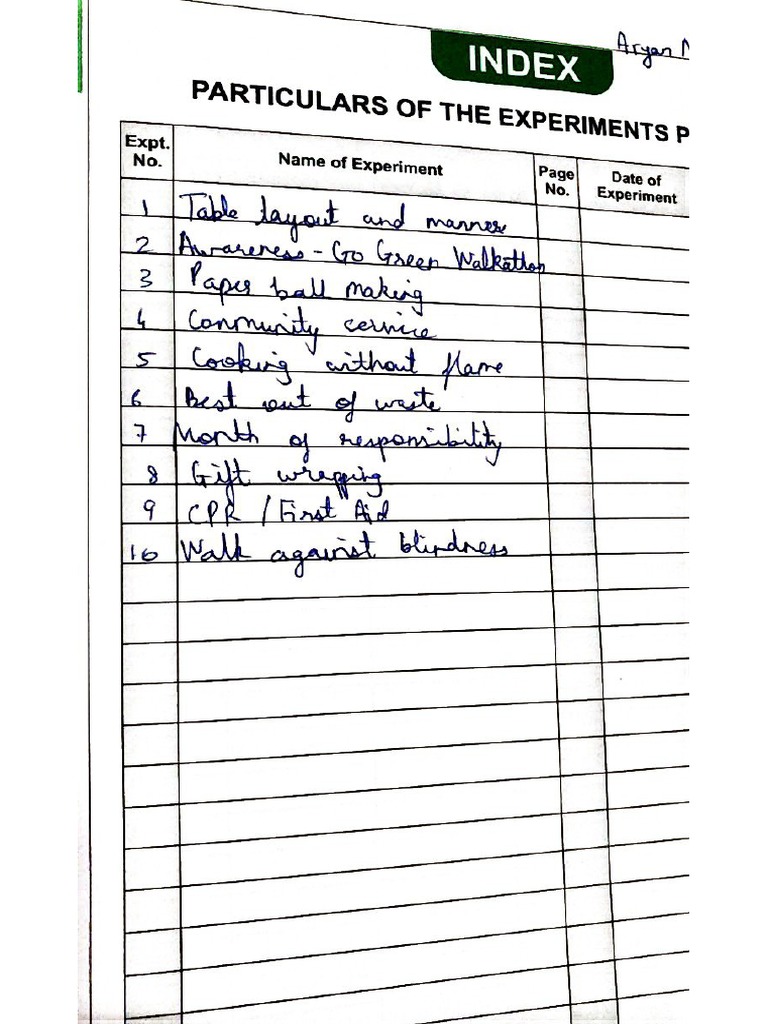 Aryan
INDEX
PARTICULARS OF THE EXPERIMENTS P
Expt. No. Name of Experiment Page No. Date of Experiment
1 Table layout and manners
2 Awareness - Go Green Walkathon
3 Paper ball making
4 Community service
5 Cooking without flame
6 Best out of waste
7 Month of responsibility
8 Gift wrapping
9 CPR / First Aid
10 Walk against blindness